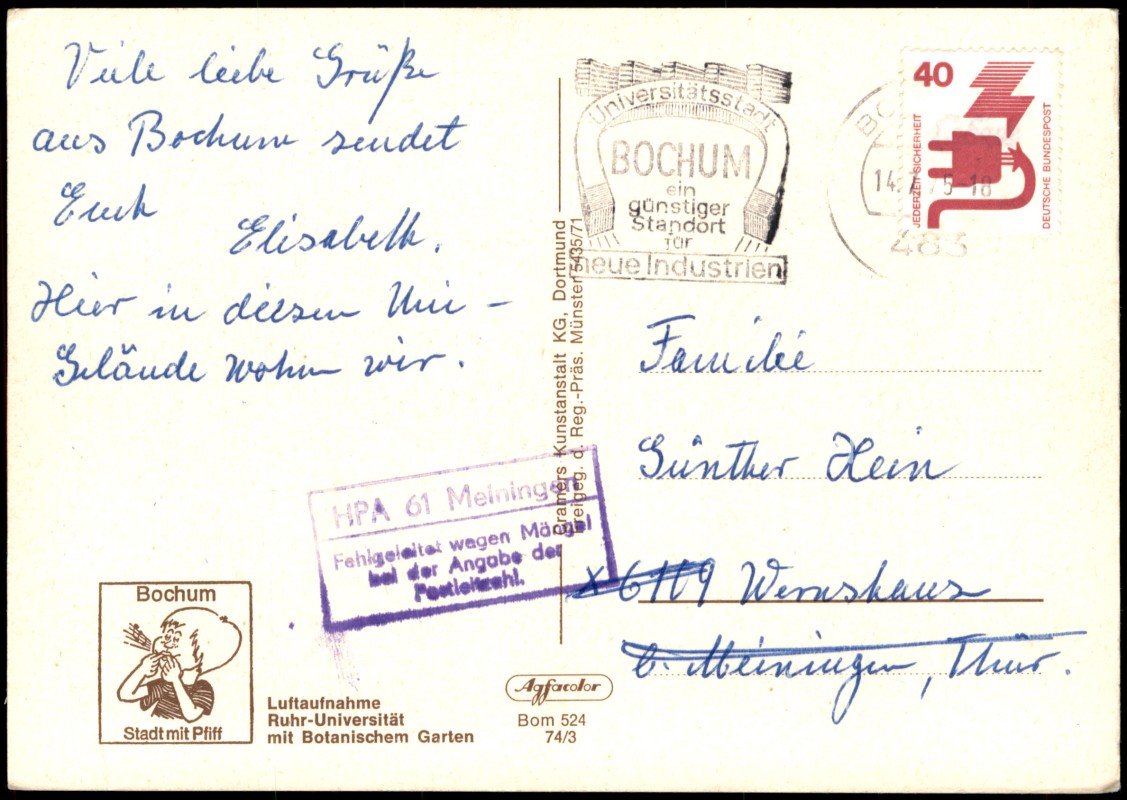 Viele liebe Grüße
aus Bochum sendet
Euch
Elisabeth.
Hier in diesem Uni-
Gelände wohnen wir.
Universitätsstadt
BOCHUM
ein
günstiger
Standort
für
neue Industrien
BO
14. 7.75-18
463
40
JEDERZEIT SICHERHEIT
DEUTSCHE BUNDESPOST
Cramers Kunstanstalt KG, Dortmund
Freigeg. d. Reg.-Präs. Münster 5435/71
Familie
Günther Hein
X6109 Wernshaus
b. Meiningen, Thür.
HPA 61 Meiningen
Fehlgeleitet wegen Mängel
bei der Angabe der
Postleitzahl.
Bochum
Stadt mit Pfiff
Luftaufnahme
Ruhr-Universität
mit Botanischem Garten
Agfacolor
Bom 524
74/3